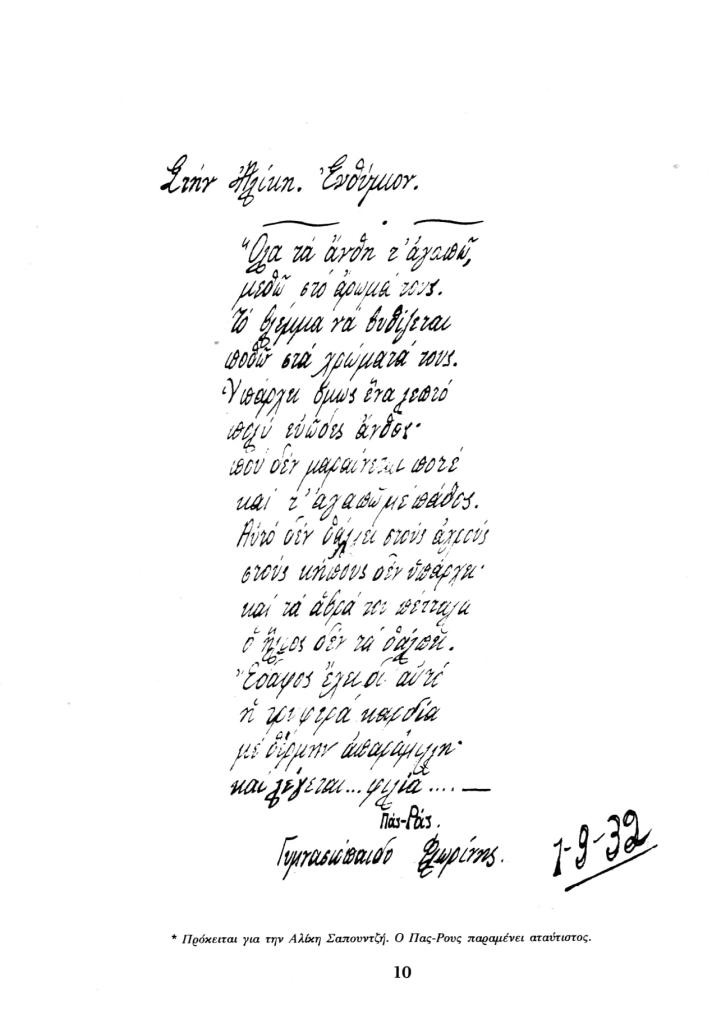 Στήν Ἀλίκη. Ἐνθύμιον.
Ὅλα τά ἄνθη τ' ἀγαπῶ,
μεθῶ στό ἄρωμά τους.
Τό βλέμμα νά βυθίζεται
ποθῶ στά χρώματά τους.
Ὑπάρχει ὅμως ἕνα λεπτό
πολύ εὐῶδες ἄνθος·
πού δέν μαραίνεται ποτέ
καί τ' ἀγαπῶ μέ πάθος.
Αὐτό δέν θάλλει στούς ἀγρούς
στούς κήπους δέν ὑπάρχει·
καί τά ἁβρά του πέταλα
ὁ ἥλιος δέν τά θάλπει.
Ἔδαφος ἔχει δι' αὐτό
ἡ τρυφερά καρδία
μέ θέρμην ἀπαράμιλλη·
καί λέγεται... φιλία....—
Πάς-Ρούς.
Γυμνασιόπαιδο Φλωρίνης.
1-9-32
* Πρόκειται για την Αλίκη Σαπουντζή. Ο Πας-Ρους παραμένει αταύτιστος.
10